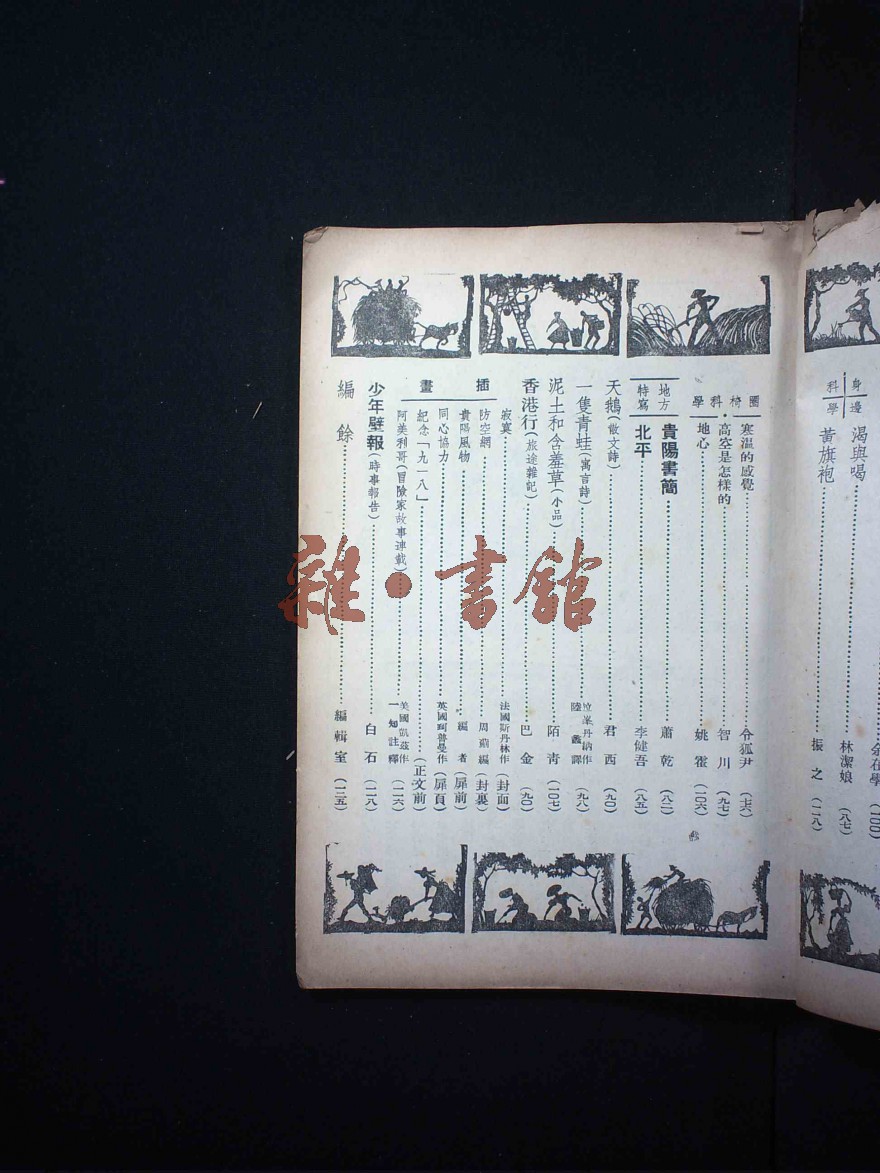 身邊科學
渴與喝……林潔娘（八七）
黃旗袍……振之（一一八）
圈椅科學
寒溫的感覺……令狐尹（七六）
高空是怎樣的……智川（九七）
地心……姚霍（一〇六）
地方特寫
貴陽書簡……蕭乾（八二）
北平……李健吾（八五）
天鵝（散文詩）……君西（九〇）
一隻青蛙（寓言詩）……陸蠡譯（九八）
泥土和含羞草（小品）……陌青（一〇七）
香港行（旅途雜記）……巴金（九〇）
插畫
寂寞……法國斯丹林作（封面）
防空網……編（封裏）
貴陽風物……編者（扉前）
同心協力……英國珂普曼作（扉頁）
紀念「九一八」……（正文前）
阿美利哥（冒險家故事連載）……美國凱茲作 一知註釋（一一六）
少年壁報（時事報告）……白石（一二八）
編餘……編輯室（一三五）
雜·書館